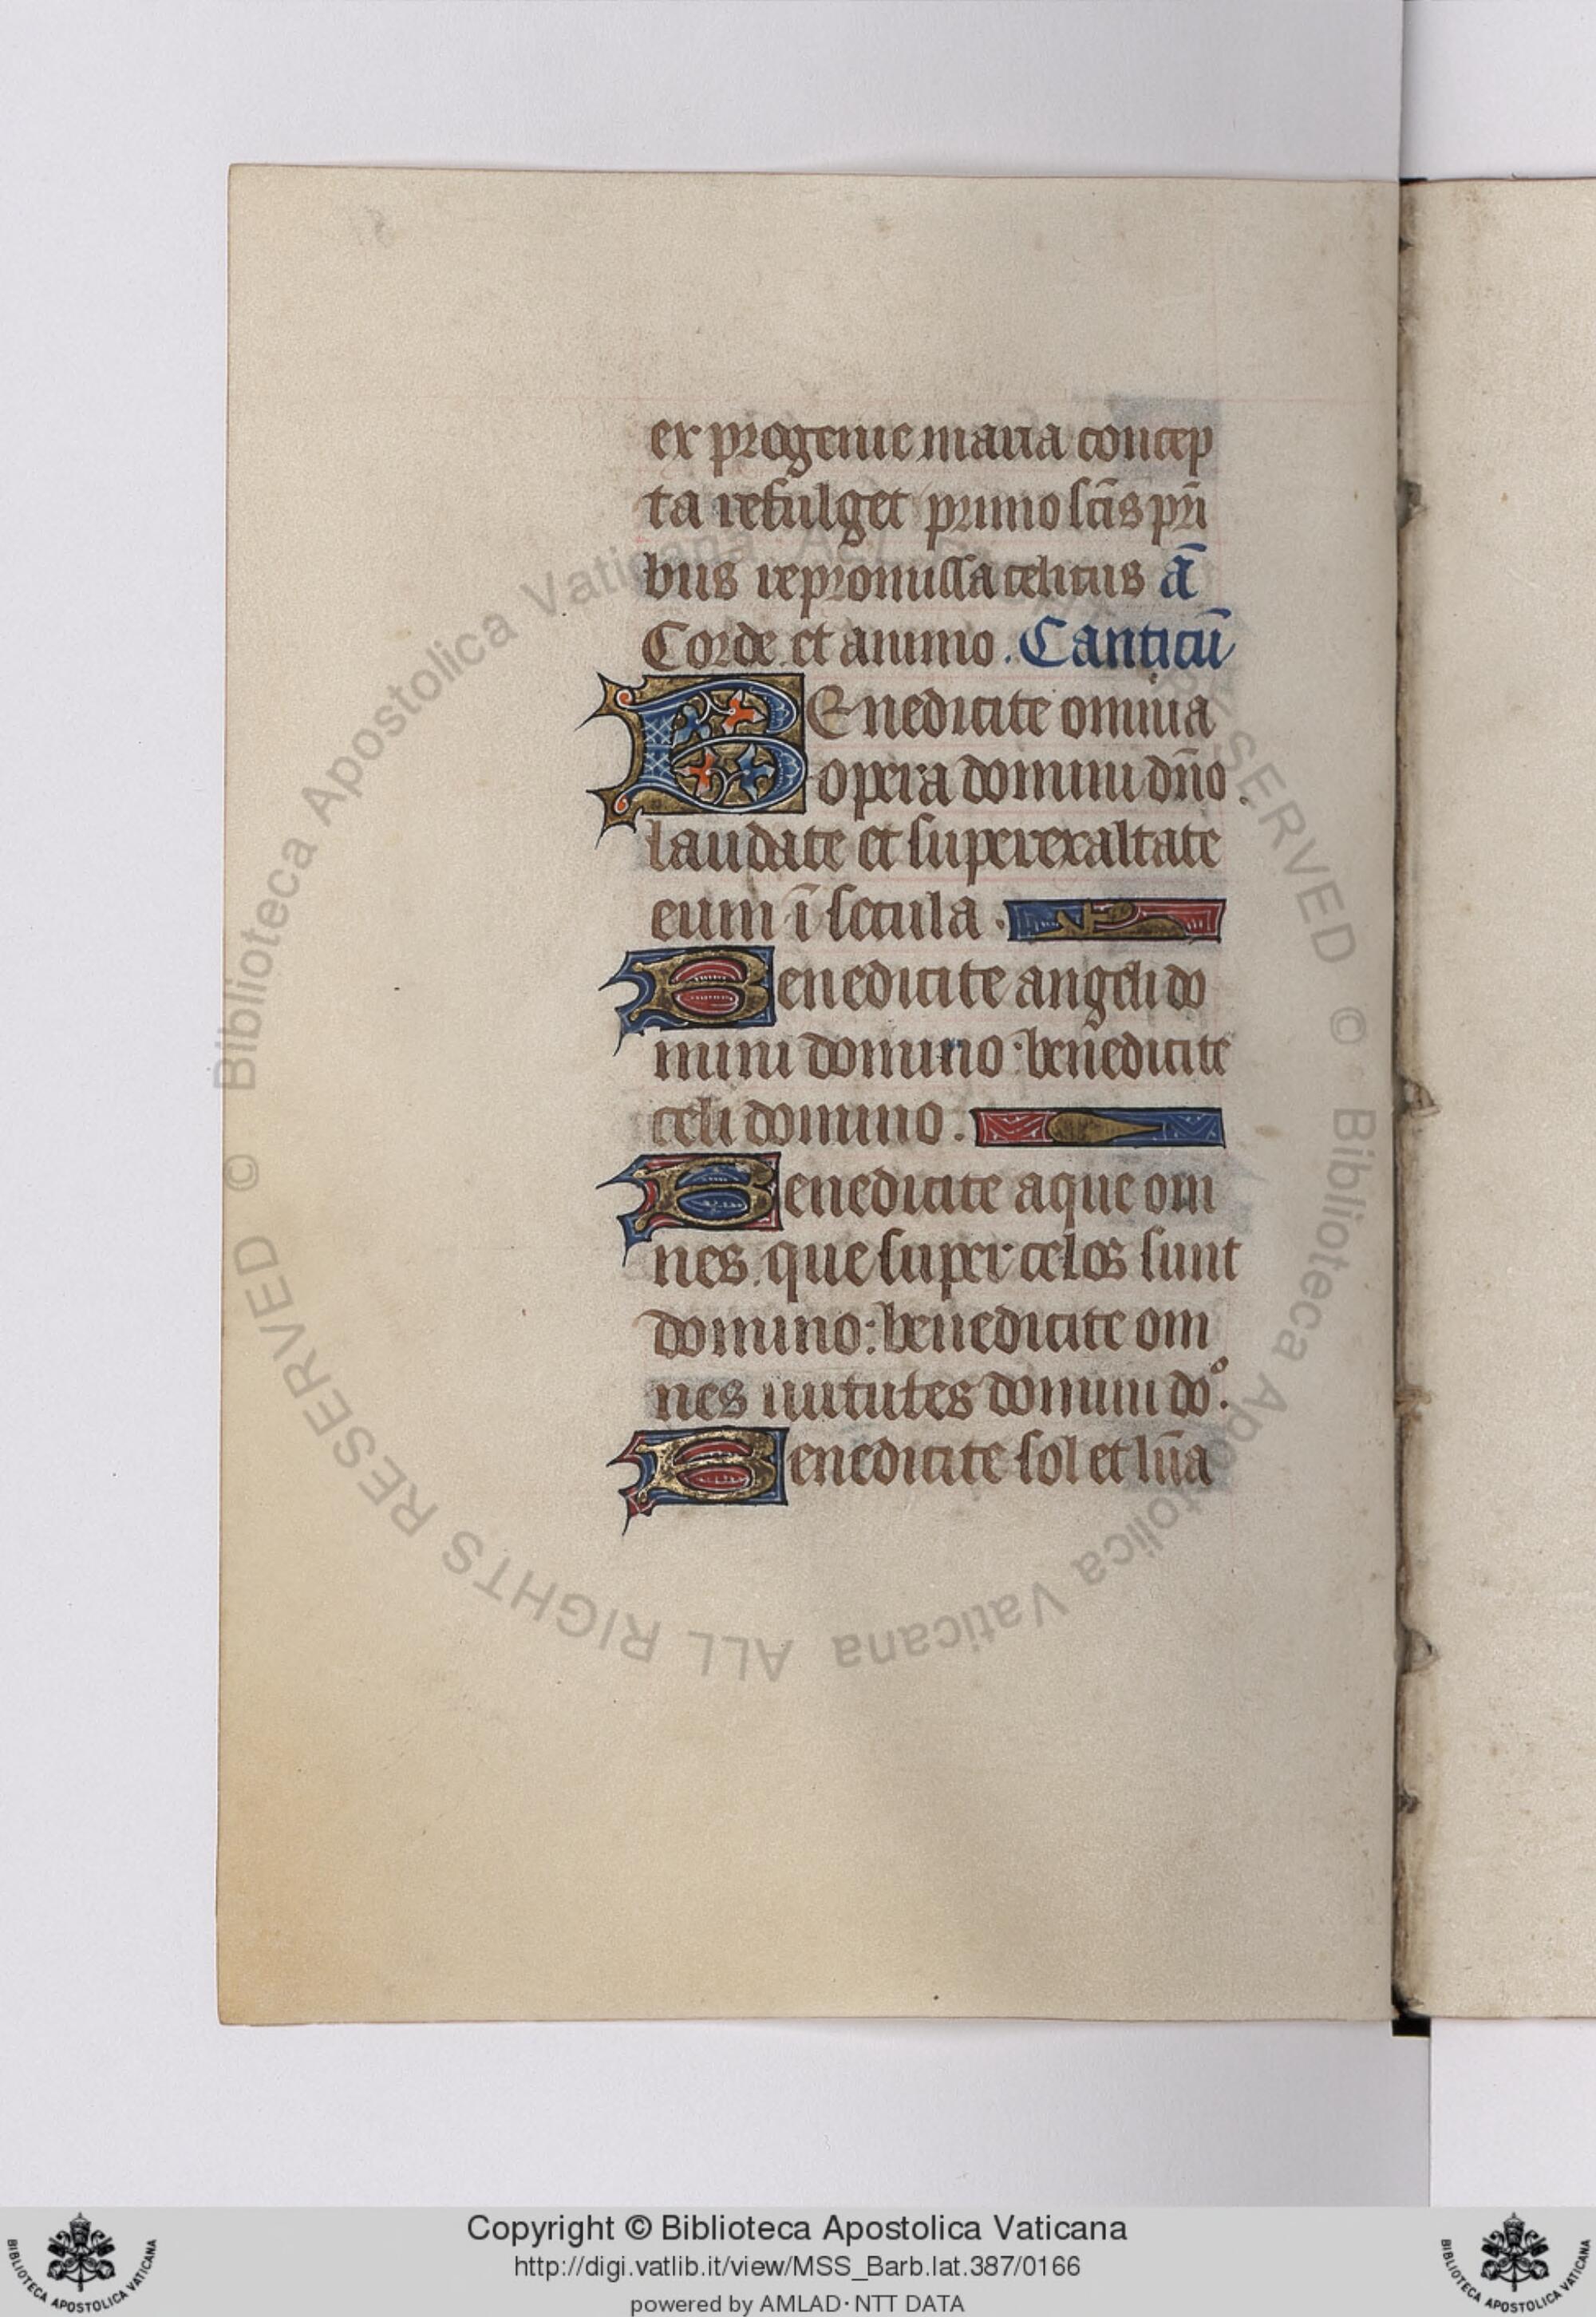 ex progenie maria concep
ta refulget primo sc̄is pr̄i
bus repromissa celitus ā
Corde et animo. Canticū
BEnedicite omnia
opera domini dn̄o.
laudate et superexaltate
eum ī secula.
Benedicite angeli do
mini domino: benedicite
celi domino.
Benedicite aque om
nes que super celos sunt
domino: benedicite om
nes uirtutes domini doº.
Benedicite sol et luna
© Biblioteca Apostolica Vaticana ALL RIGHTS RESERVED © Biblioteca Apostolica Vaticana ALL RIGHTS RESERVED
Copyright © Biblioteca Apostolica Vaticana
http://digi.vatlib.it/view/MSS_Barb.lat.387/0166
powered by AMLAD·NTT DATA
BIBLIOTECA APOSTOLICA VATICANA
BIBLIOTECA APOSTOLICA VATICANA